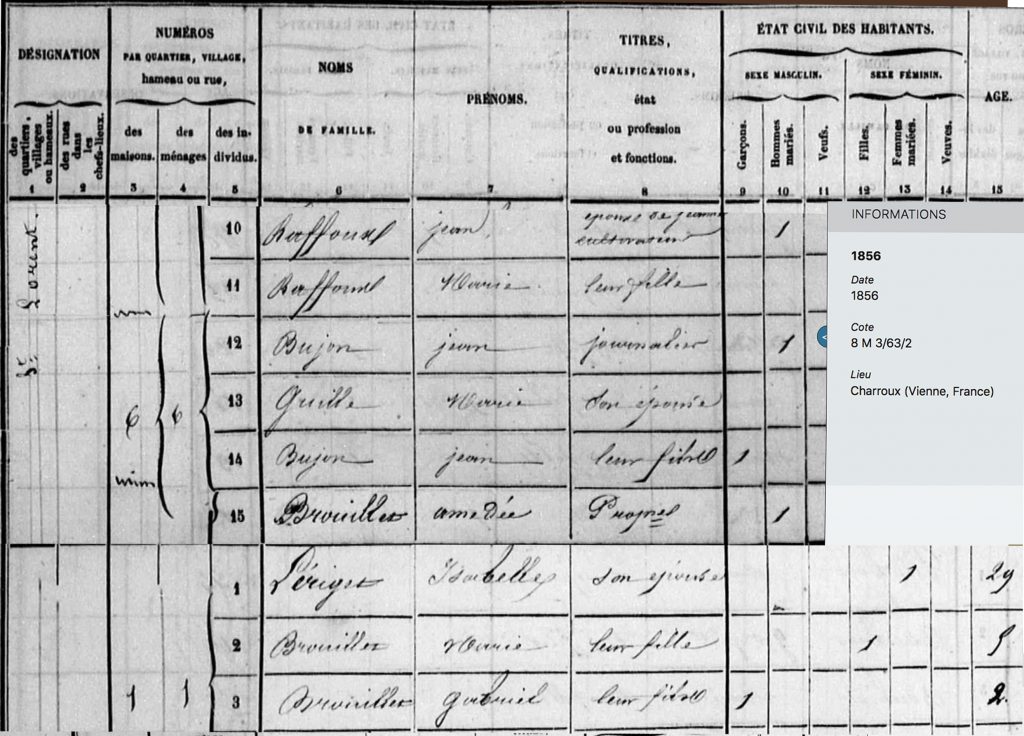 DÉSIGNATION
des quartiers, villages ou hameaux.
des rues dans les chefs-lieux.
NUMÉROS
PAR QUARTIER, VILLAGE,
hameau ou rue,
des maisons.
des ménages
des individus.
NOMS
DE FAMILLE.
PRÉNOMS.
TITRES,
QUALIFICATIONS,
état
ou profession
et fonctions.
ÉTAT CIVIL DES HABITANTS.
SEXE MASCULIN.
SEXE FÉMININ.
Garçons.
Hommes mariés.
Veufs.
Filles.
Femmes mariées.
Veuves.
AGE.
1 2 3 4 5 6 7 8 9 10 11 12 13 14 15
St Lorent.
10 Raffoux jean, epouse de jeanne cultivateur 1
11 Raffoux Marie leur fille
12 Bujon jean journalier 1
6 6 13 Guille Marie Son épouse
14 Bujon jean leur fils 1
15 Brouillet amedée Propre 1
1 Périget Isabelle Son epouse 1 29
2 Brouillet Marie leur fille 1 5
1 1 3 Brouillet gabriel leur fils 1 2.
INFORMATIONS
1856
Date
1856
Cote
8 M 3/63/2
Lieu
Charroux (Vienne, France)